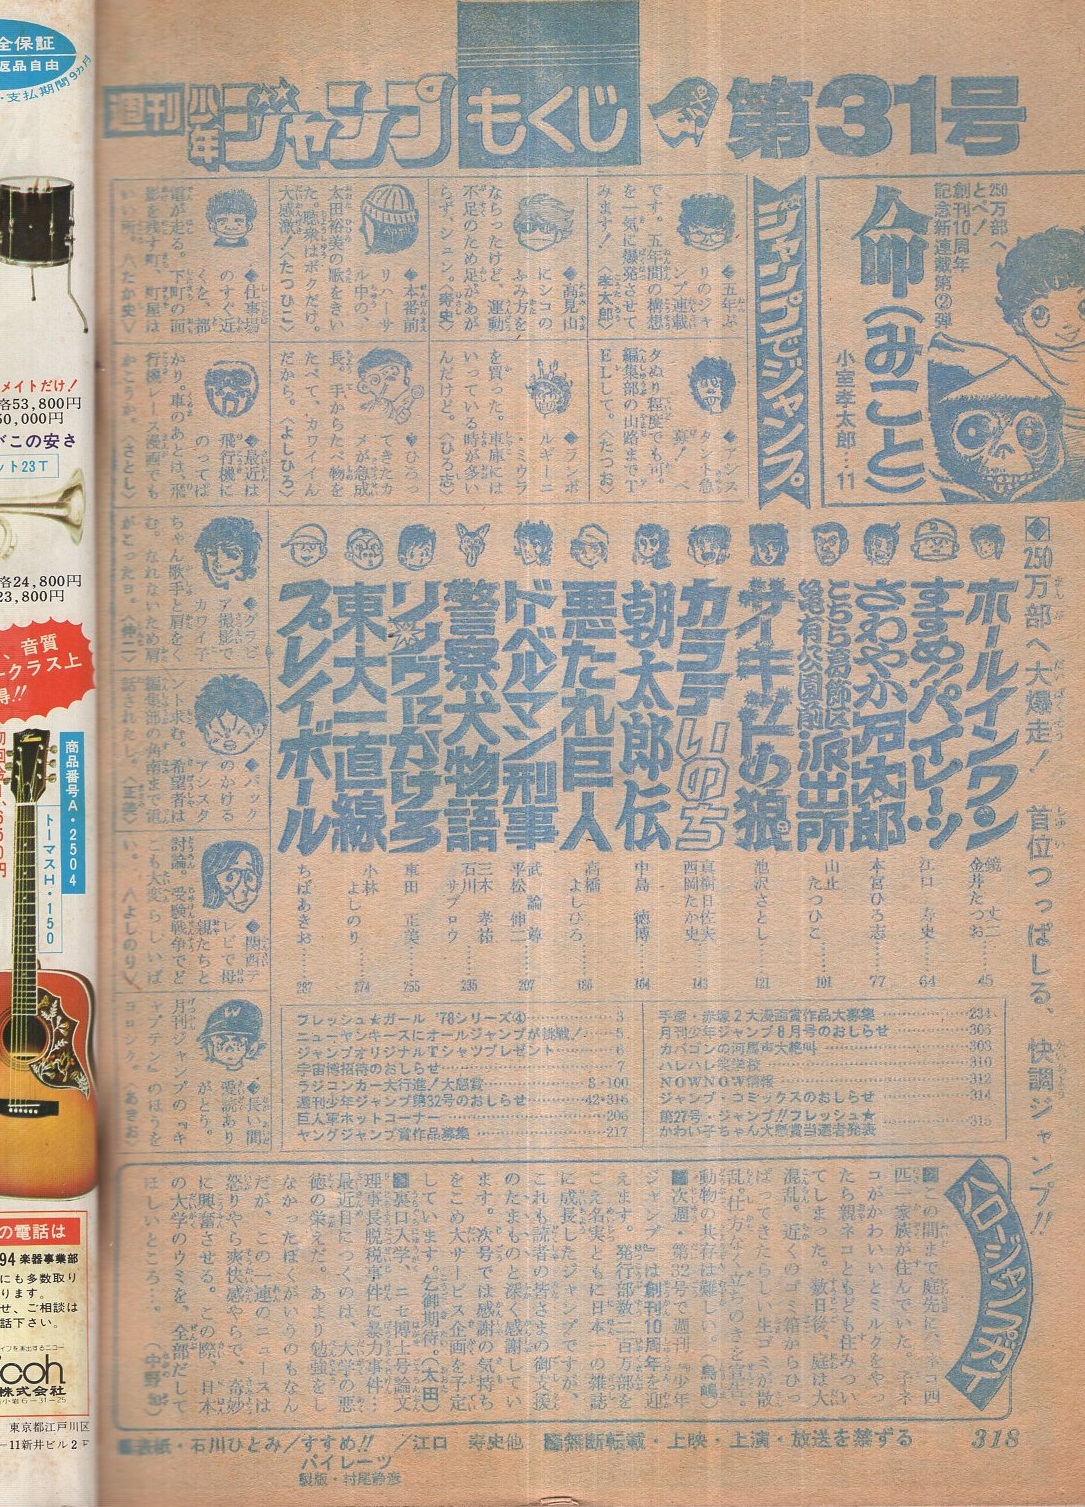 週刊少年ジャンプ もくじ 第31号
250万部へ
とべ!
創刊10周年
記念新連載第②弾
命(みこと)
小室孝太郎…11
ジャンプでジャンプ
◆五年ぶ
りのジャ
ンプ連載
です。五年間の構想
を一気に爆発させて
みます!〈孝太郎〉
◆高見山
にシコの
ふみ方を
ならったけど、運動
不足のため足があが
らず、シュン。〈寿史〉
◆本番前
リハーサ
ル中の、
太田裕美の歌をきい
た。聴衆はボクだけ。
大感激!〈たつひこ〉
◆仕事場
のすぐ近
くを、都
電が走る。下町の面
影を残す町、町屋は
いい所。〈たか史〉
◆アシス
タント急
募!ベ
タぬり程度でも可。
編集部の山路までT
ELして。〈たつお〉
◆ランボ
ルギーニ
・ミウラ
を買った。車庫には
いっている時が多い
んだけど。〈ひろ志〉
◆ひろっ
てきたカ
メが急成
長。手からたべ物を
たべて、カワイイん
だから。〈よしひろ〉
◆最近は
飛行機に
のってば
かり。車のあとは、飛
行機レース漫画でも
かこうか。〈さとし〉
◆グラビ
ア撮影で
カワイ子
ちゃん歌手と肩をく
む。なれないため肩
がこったヨ。〈伸二〉
◆バック
のかける
アシスタ
ント求む。希望者は
編集部の角南まで電
話されたし。〈正美〉
◆関西テ
レビで母
親たちと
討論。受験戦争でど
こも大変らしいば
い。〈よしのり〉
◆長い間
愛読あり
がとう。
月刊ジャンプの『キ
ャプテン』のほうを
ヨロシク。〈あきお〉
◆250万部へ大爆走! 首位つっぱしる、快調ジャンプ!!
ホールインワン 鏡丈二 金井たつお……45
すすめ!!パイレーツ 江口寿史……64
さわやか万太郎 本宮ひろ志……77
こちら葛飾区亀有公園前派出所 山止たつひこ……101
サーキットの狼 池沢さとし……121
カララいのち 真樹日佐夫 西岡たか史……143
朝太郎伝 中島徳博……164
悪たれ巨人 高橋よしひろ……186
ドーベルマン刑事 武論尊 平松伸二……207
警察犬物語 三木孝祐 石川サブロウ……235
リングにかけろ 車田正美……255
東大一直線 小林よしのり……274
プレイボール ちばあきお……287
フレッシュ★ガール'78シリーズ④……3
ニューヤンキースにオールジャンプが挑戦!……5
ジャンプオリジナルTシャツプレゼント……6
宇宙博招待のおしらせ……7
ラジコンカー大行進!大懸賞……8・100
週刊少年ジャンプ第32号のおしらせ……42・316
巨人軍ホットコーナー……206
ヤングジャンプ賞作品募集……217
手塚・赤塚2大漫画賞作品大募集……234
月刊少年ジャンプ8月号のおしらせ……306
カバゴンの河馬声大絶叫……308
ハレハレ笑学校……310
NOWNOW情報……312
ジャンプ・コミックスのおしらせ……314
第27号・ジャンプ!!フレッシュ★
かわい子ちゃん大懸賞当選者発表……315
ハロージャンプカー
■この間まで庭先に、ネコ四
匹一家族が住んでいた。子ネ
コがかわいいとミルクをや
ったら親ネコともども住みつい
てしまった。数日後、庭は大
混乱。近くのゴミ箱からひっ
ぱってきたらし、生ゴミが散
乱。仕方なく立ちのきを宣告。
動物の共存は難しい。(鳥嶋)
■次週・第32号で週刊『少年
ジャンプ』は創刊10周年を迎
えます。発行部数二百万部を
こえ名実ともに日本一の雑誌
に成長したジャンプですが、
これも読者の皆さまの御支援
のたまものと深く感謝してい
ます。次号では感謝の気持ち
をこめ大サービス企画を予定
しています。乞御期待。(太田)
■裏口入学、ニセ博士号論文
理事長脱税事件に暴力事件…
最近目につくのは、大学の悪
徳の栄えだ。あまり勉強をし
なかったぼくがいうのもなん
だが、この一連のニュースは
怒りやら爽快感やらで、奇妙
に興奮させる。この際、日本
の大学のウミを、全部だして
ほしいところ…。(中野)
■表紙・石川ひとみ/すすめ!!パイレーツ/江口寿史他 ■無断転載・上映・上演・放送を禁ずる
製版・村尾静彦
318
全保証
返品自由
・支払期間9カ月
メイトだけ!
各53,800円
50,000円
この安さ
ット23T
各24,800円
23,800円
、音質
ークラス上
得!!
商品番号A・2504
トーマスH・150
の電話は
94楽器事業部
にも多数取り
ります。
せ、ご相談は
話下さい。
coh
株式会社
東京都江戸川区
-11新井ビル2F